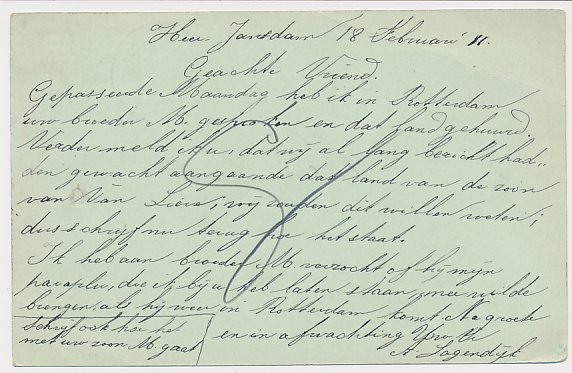 Heer Jansdam 18 Februari 11.
Geachte Vriend.
Gepasseerde Maandag heb ik in Rotterdam
uw broeder M. gesproken en dat land gehuurd.
Verder meld ik u, dat wij al lang bericht had„
den gewacht aangaande dat land van de zoon
van Van Liere; wij zouden dit willen weten;
dus schrijf nu terug hoe het staat.
Ik heb aan broeder M. verzocht of hij mijn
paraplu, die ik bij u heb laten staan, mee wilde
brengen als hij weer in Rotterdam komt Na groete
en in afwachting
A Lagendijk
Schrijf ook hoe het
met uw zoon M. gaat